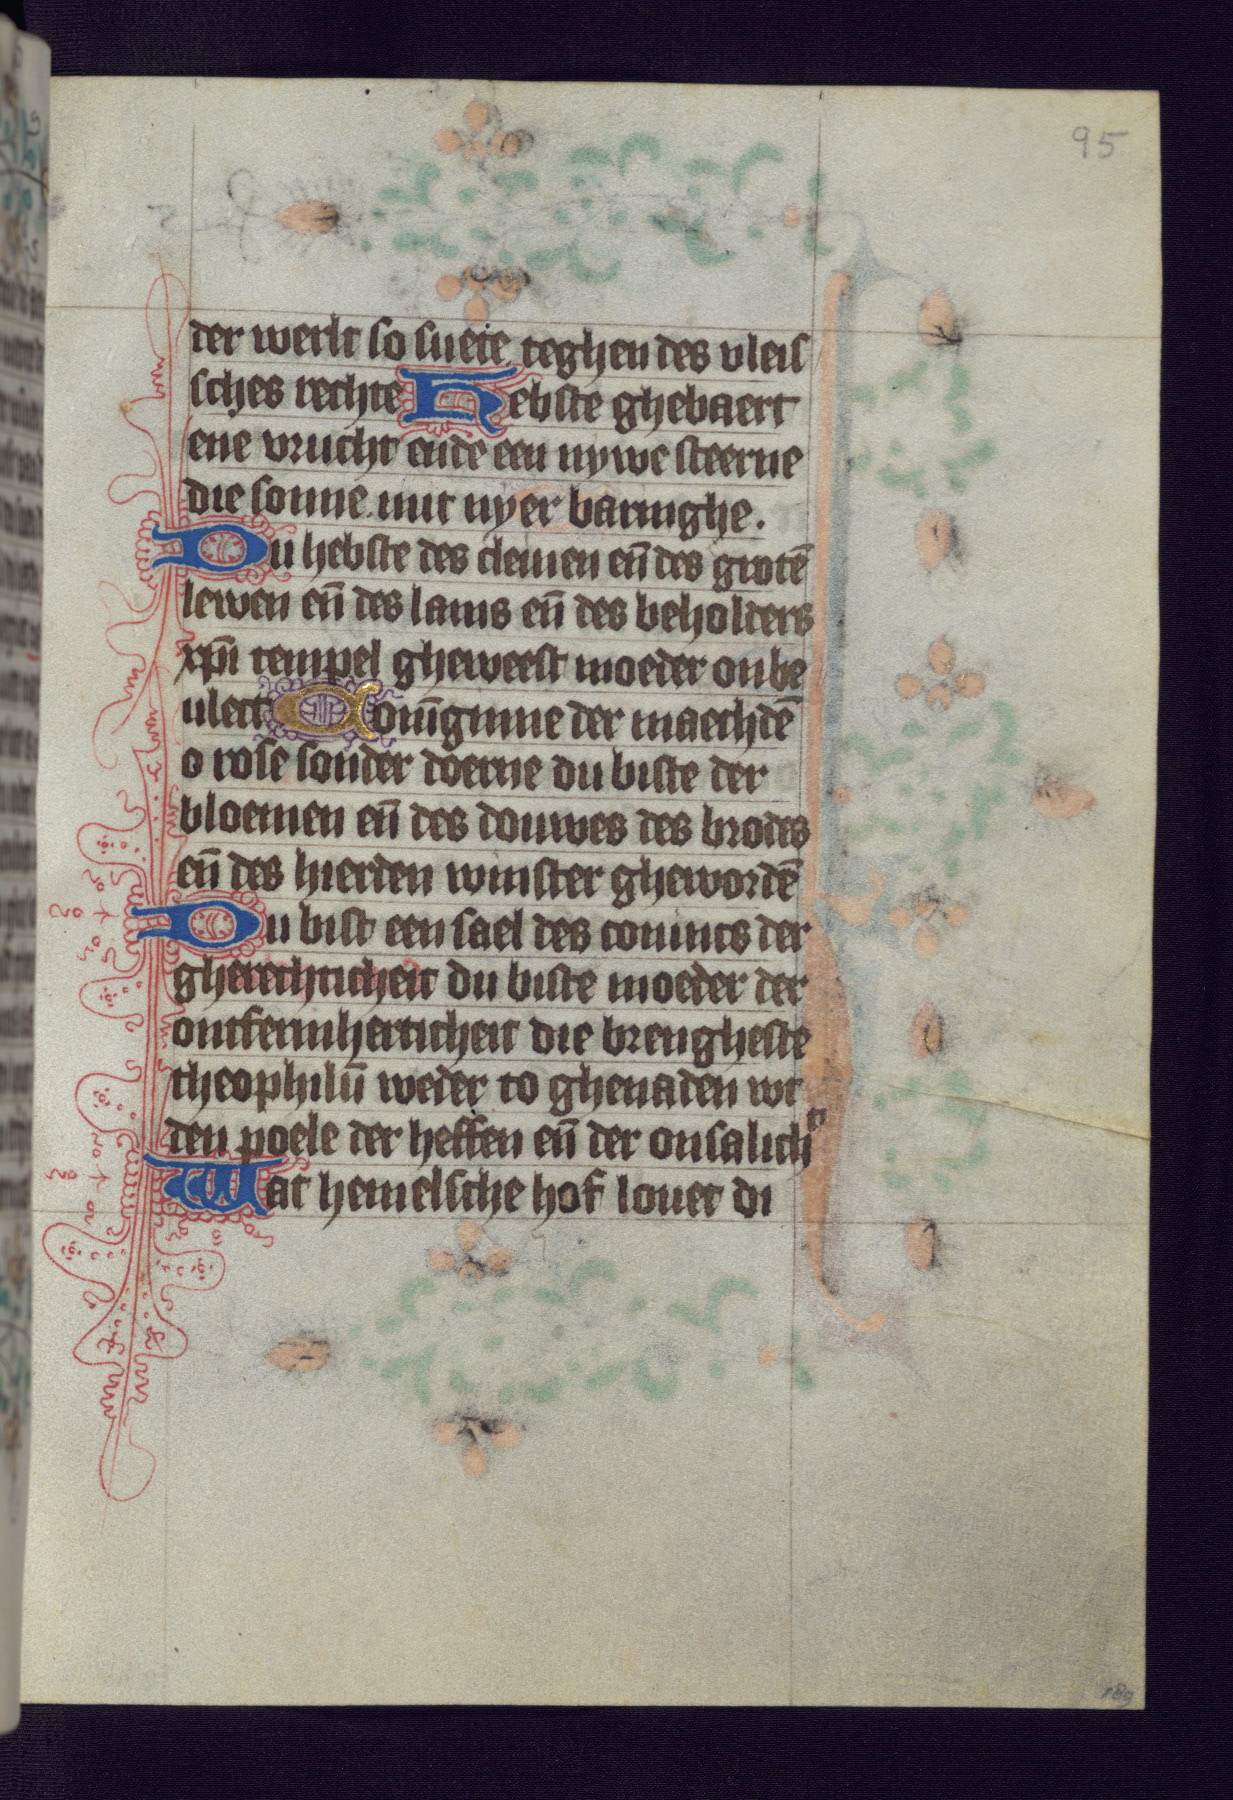 95
der werlt so suete teghen des vleis
sches rechte Hebste ghebaert
ene vrucht ende een nywe steerne
die sonne mit nyer baringhe.
Du hebste des cleinen en̄ des grotē
lewen en̄ des lams en̄ des beholders
xp̄i tempel gheweest moeder onbe
vlect Coni̅ginne der maechdē
o rose sonder doerne du biste der
bloemen en̄ des douwes des brodes
en̄ des hierden winster ghewordē
Du bist een sael des conincs der
gherechticheit du biste moeder der
ontfermherticheit die brengheste
theophilū weder to ghenaden wt
den poele der heffen en̄ der onsalich
Wat hemelsche hof louet di
189